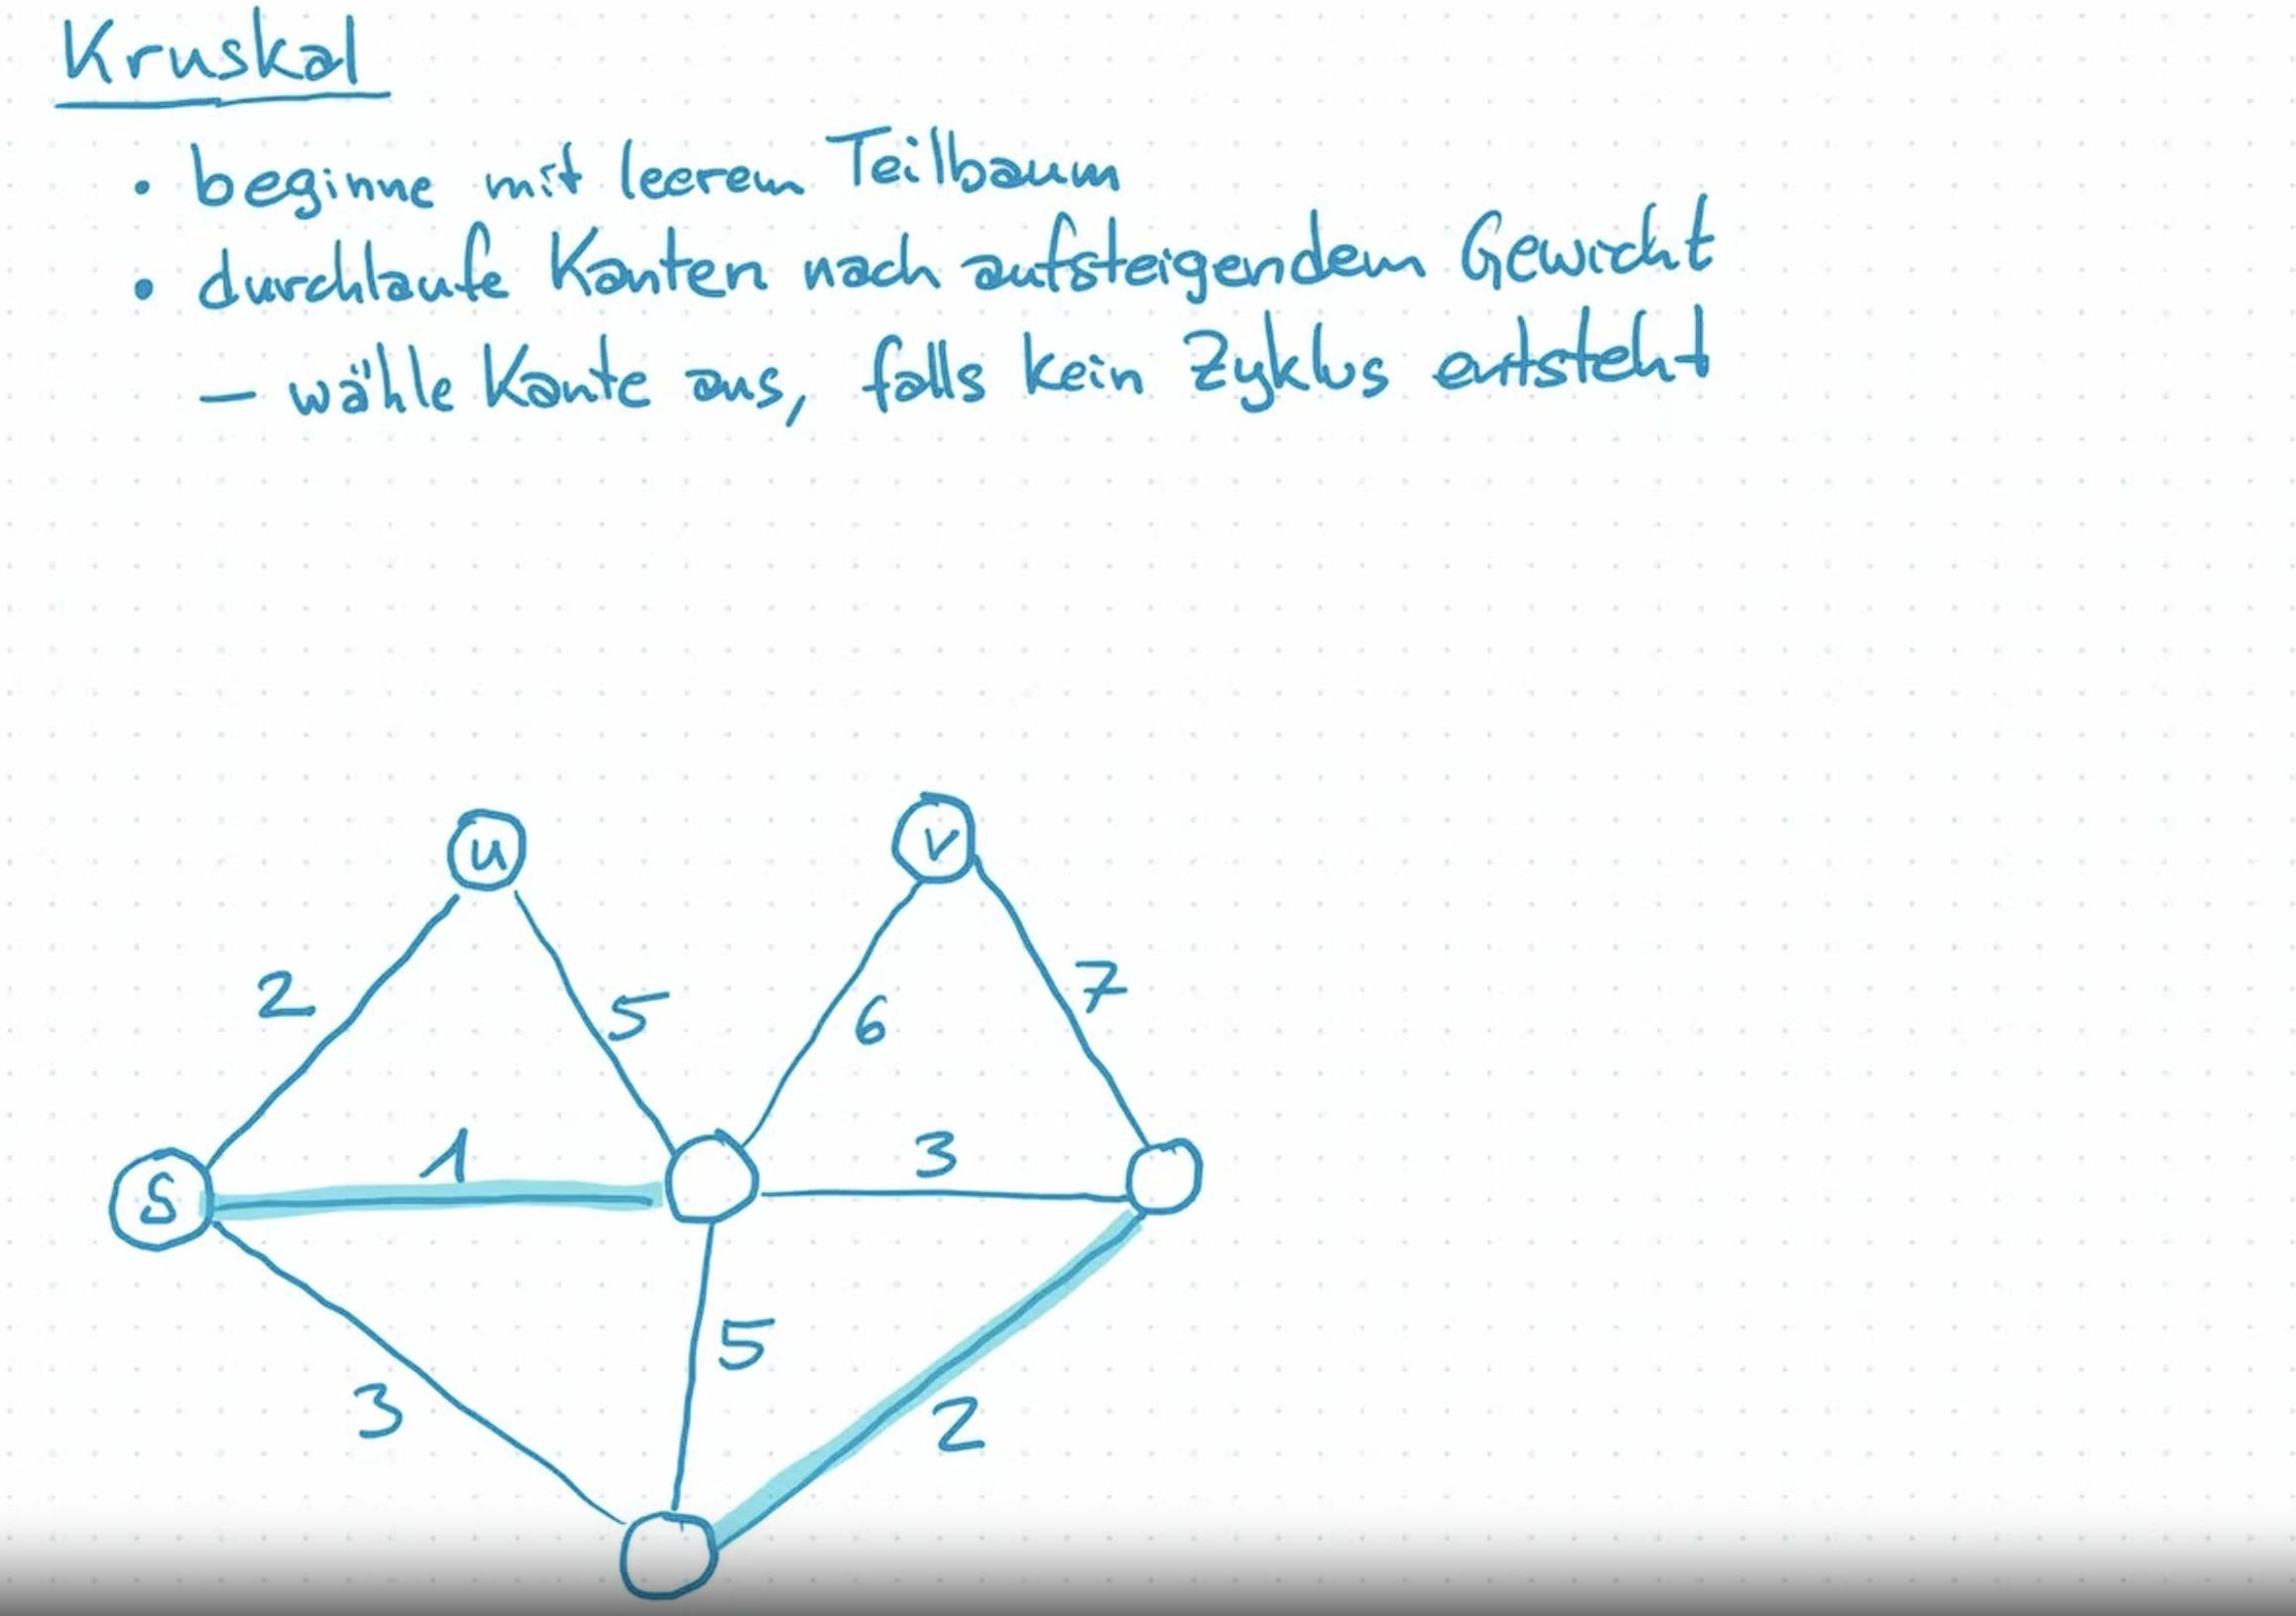 Kruskal
• beginne mit leerem Teilbaum
• durchlaufe Kanten nach aufsteigendem Gewicht
— wähle Kante aus, falls kein Zyklus entsteht
u
v
2
5
6
7
s
1
3
3
5
2